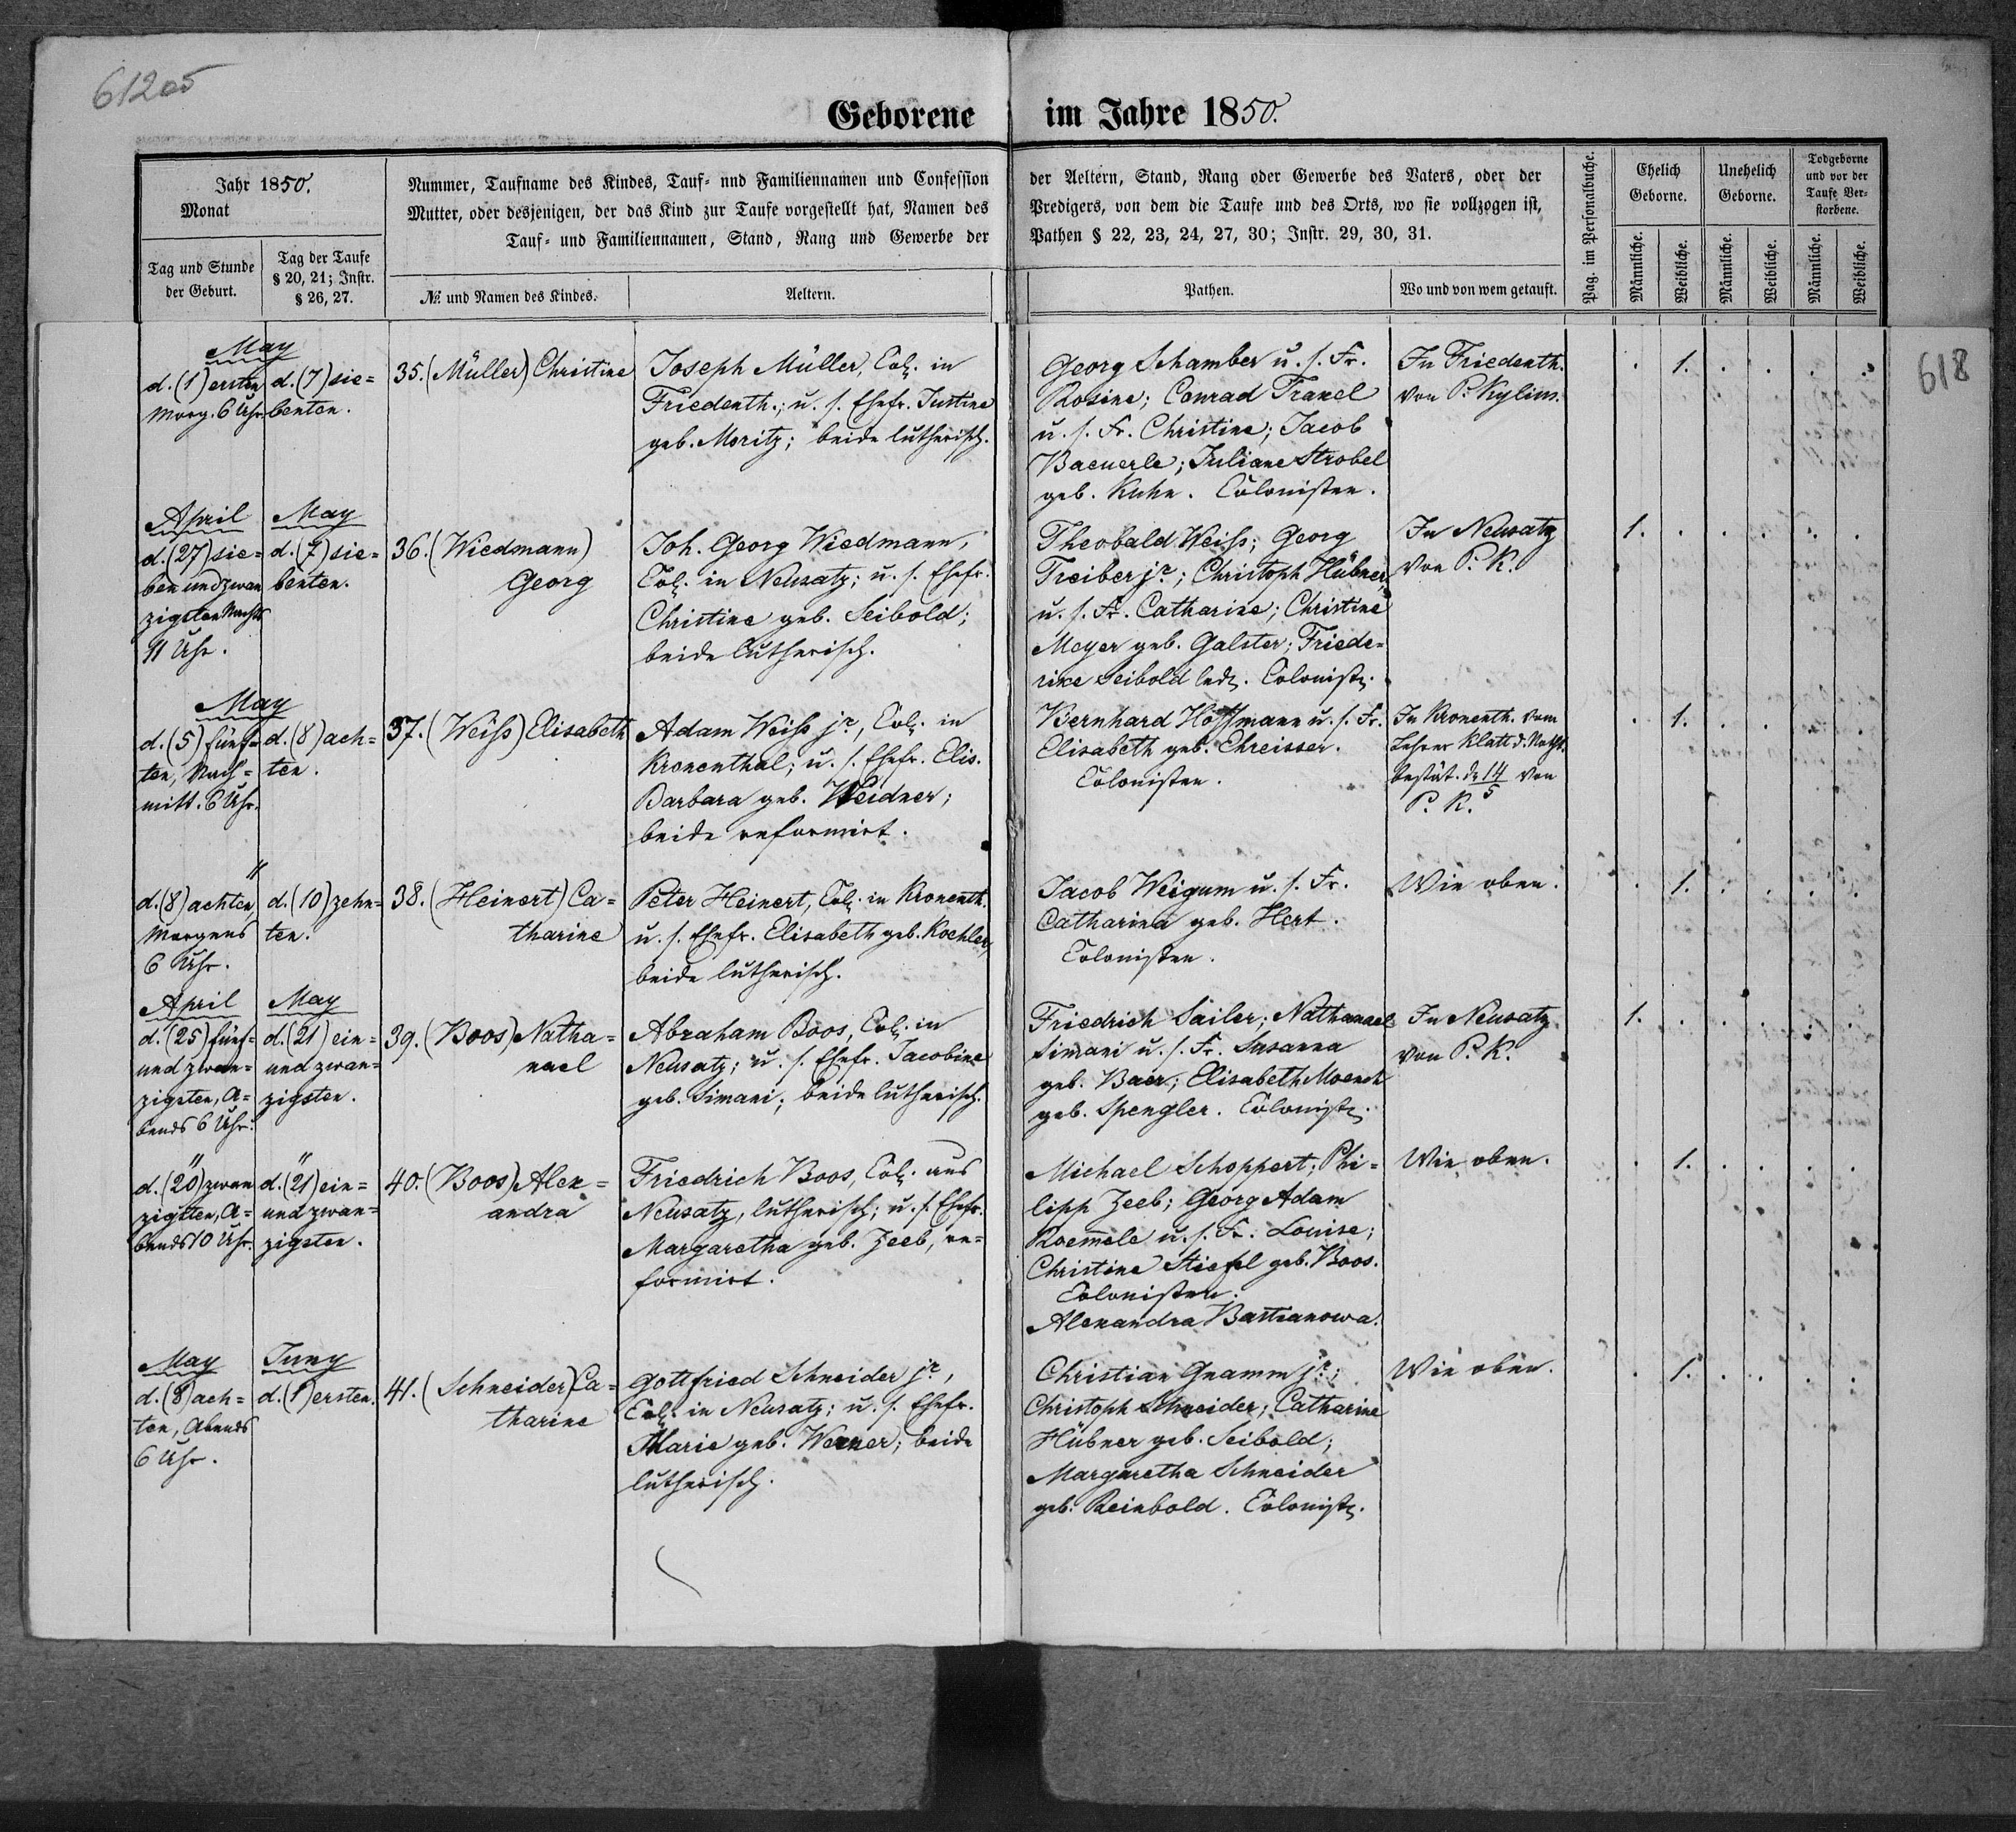 612 об
Geborene im Jahre 1850.
Jahr 1850.
Monat
Tag und Stunde
der Geburt.
Tag der Taufe
§ 20, 21; Instr.
§ 26, 27.
Nummer, Taufname des Kindes, Tauf- nnd Familiennamen und Confession
Mutter, oder desjenigen, der das Kind zur Taufe vorgestellt hat, Namen des
Tauf- und Familiennamen, Stand, Rang und Gewerbe der
№ und Namen des Kindes.
Aeltern.
der Aeltern, Stand, Rang oder Gewerbe des Vaters, oder der
Predigers, von dem die Taufe und des Orts, wo sie vollzogen ist,
Pathen § 22, 23, 24, 27, 30; Instr. 29, 30, 31.
Pathen.
Wo und von wem getauft.
Pag. im Personalbuche.
Ehelich
Geborne.
Unehelich
Geborne.
Todgeborne
und vor der
Taufe Ver-
storbene.
Männliche.
Weibliche.
Männliche.
Weibliche.
Männliche.
Weibliche.
618
May
d. (1) ersten
Morg. 6 Uhr
d. (7) sie=
benten.
35. (Müller) Christine
Joseph Müller, Col. in
Friedenth.; u. s. Ehefr. Justine
geb. Moritz; beide lutherisch.
Georg Schamber u. s. Fr.
Rosine; Conrad Traxel
u. s. Fr. Christine; Jacob
Baeuerle; Juliane Strobel
geb. Kuhn. Colonisten.
In Friedenth.
von P. Kylius.
1.
April
d. (27) sie=
ben und zwan
zigsten Nachts
11 Uhr.
May
d. (7) sie=
benten.
36. (Wiedmann)
Georg
Joh. Georg Wiedmann,
Col. in Neusatz; u. s. Ehefr.
Christine geb. Seibold;
beide lutherisch.
Theobald Weiss; Georg
Treiber jr; Christoph Hübner,
u. s. Fr. Catharine; Christine
Meyer geb. Galster; Friede=
rike Seibold led. Colonist.
In Neusatz
von P. K.
1.
May
d. (5) fünf=
ten, Nach=
mitt. 6 Uhr.
d. (8) ach=
ten.
37. (Weiss) Elisabeth
Adam Weiss jr, Col. in
Kronenthal; u. s. Ehefr. Elis.
Barbara geb. Weidner;
beide reformirt.
Bernhard Hoffmann u. s. Fr.
Elisabeth geb. Ehreisser.
Colonisten.
In Kronenth. vom
Lehrer Klatt d. Notht.
bestät. d. 14/5 von
P. K.
1.
"
d. (8) achten
Morgens
6 Uhr.
d. (10) zehn=
ten.
38. (Heinert) Ca=
tharine
Peter Heinert, Col. in Kronenth.
u. s. Ehefr. Elisabeth geb. Koehler,
beide lutherisch.
Jacob Weigum u. s. Fr.
Catharina geb. Hert.
Colonisten.
Wie oben.
1.
April
d. (25) fünf=
und zwan=
zigsten, A=
bends 6 Uhr.
May
d. (21) ein=
und zwan=
zigsten.
39. (Boos) Natha=
nael
Abraham Boos, Col. in
Neusatz; u. s. Ehefr. Jacobine
geb. Simani; beide lutherisch.
Friedrich Sailer; Nathanael
Simani u. s. Fr. Susanna
geb. Baer; Elisabeth Moench
geb. Spengler. Colonist.
In Neusatz
von P. K.
1.
"
d. (20) zwan
zigsten, A=
bends 10 Uhr.
"
d. (21) ein=
und zwan=
zigsten.
40. (Boos) Alex=
andra
Friedrich Boos, Col. aus
Neusatz, lutherisch; u. s. Ehefr.
Margaretha geb. Zeeb, re=
formirt.
Michael Schoppert; Phi=
lipp Zeeb; Georg Adam
Roemele u. s. Fr. Louise;
Christine Stiefel geb. Boos.
Colonisten.
Alexandra Bastianowa.
Wie oben.
1.
May
d. (8) ach=
ten, Abends
6 Uhr.
Juny
d. (1) ersten.
41. (Schneider) Ca=
tharine
Gottfried Schneider jr,
Col. in Neusatz; u. s. Ehefr.
Marie geb. Werner; beide
lutherisch.
Christian Gnamm jr;
Christoph Schneider; Catharine
Hübner geb. Seibold;
Margaretha Schneider
geb. Reinbold. Colonist.
Wie oben.
1.